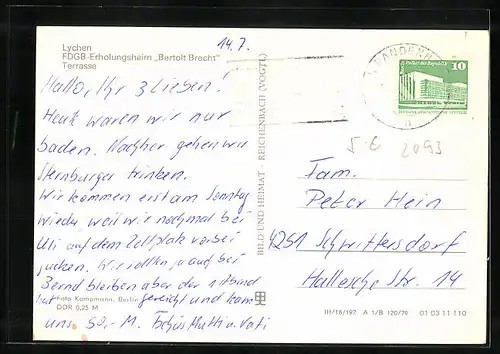 Lychen
FDGB-Erholungsheim „Bertolt Brecht"
Terrasse
14.7.
Hallo, Ihr 3 Lieben!
Heute waren wir nur
baden. Nachher gehen wir
Sternburger trinken.
Wir kommen erst am Sonntag
wieder weil wir nochmal bei
Uli auf dem Zeltplatz vorbei
gucken. Wir wollten ja auch bei
Bernd bleiben aber der
hat gereicht und kam
uns. So.-M. Tschüs Mutti u. Vati
Foto Kampmann, Berlin
DDR 0,25 M
BILD UND HEIMAT · REICHENBACH (VOGTL)
10
5 €
2093
Fam.
Peter Hein
4251 Schwittersdorf
Hallesche Str. 14
III/18/197 A 1/B 120/79 01 03 11 110